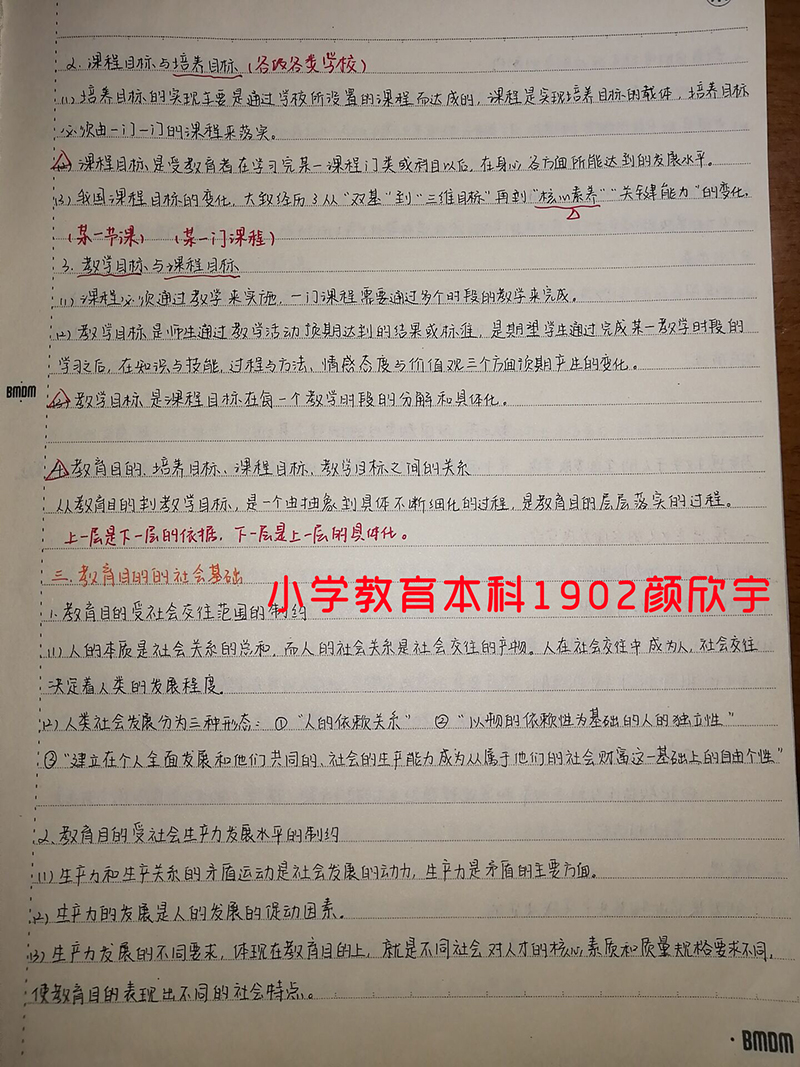 2. 课程目标与培养目标（各级各类学校）
(1) 培养目标的实现主要是通过学校所设置的课程而达成的，课程是实现培养目标的载体，培养目标
必须由一门一门的课程来落实。
(2) 课程目标是受教育者在学习完某一课程门类或科目以后，在身心各方面所能达到的发展水平。
(3) 我国课程目标的变化，大致经历了从“双基”到“三维目标”再到“核心素养”“关键能力”的变化。
（某一节课） （某一门课程）
3. 教学目标与课程目标
(1) 课程必须通过教学来实施，一门课程需要通过多个时段的教学来完成。
(2) 教学目标是师生通过教学活动预期达到的结果或标准，是期望学生通过完成某一教学时段的
学习之后，在知识与技能，过程与方法、情感态度与价值观三个方面预期产生的变化。
BMDM
(3) 教学目标是课程目标在每一个教学时段的分解和具体化。
4. 教育目的、培养目标、课程目标、教学目标之间的关系
从教育目的到教学目标，是一个由抽象到具体不断细化的过程，是教育目的层层落实的过程。
上一层是下一层的依据，下一层是上一层的具体化。
三. 教育目的的社会基础
小学教育本科1902颜欣宇
1. 教育目的受社会交往范围的制约
(1) 人的本质是社会关系的总和，而人的社会关系是社会交往的产物。人在社会交往中成为人，社会交往
决定着人类的发展程度。
(2) 人类社会发展分为三种形态：①“人的依赖关系” ②“以物的依赖性为基础的人的独立性”
③“建立在个人全面发展和他们共同的、社会的生产能力成为从属于他们的社会财富这一基础上的自由个性”
2. 教育目的受社会生产力发展水平的制约
(1) 生产力和生产关系的矛盾运动是社会发展的动力，生产力是矛盾的主要方面。
(2) 生产力的发展是人的发展的促动因素。
(3) 生产力发展的不同要求，体现在教育目的上，就是不同社会对人才的核心素质和质量规格要求不同，
使教育目的表现出不同的社会特点。
·BMDM